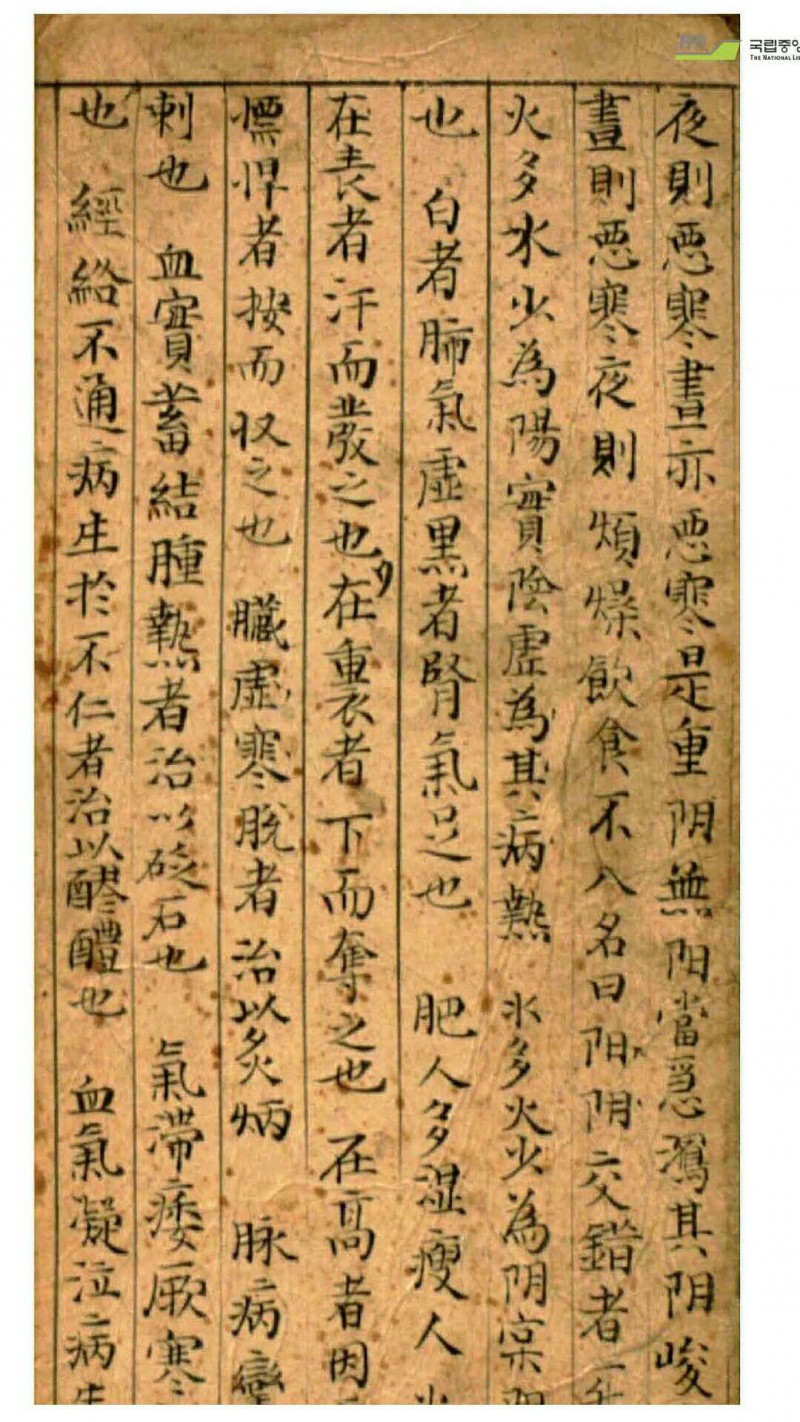 夜則惡寒晝亦惡寒是重阴無阳當急瀉其阴峻
晝則惡寒夜則煩燥飲食不入名曰阳阴交錯者
火多水少為陽實陰虛為其病熱 水多火少為阴实
也 白者肺氣虛黑者腎氣足也 肥人多湿瘦人
在表者汗而發之也在裏者下而奪之也 在高者因
慓悍者按而収之也 臟虛寒脫者治以炙焫 脉病攣
刺也 血實蓄結腫熱者治以砭石也 氣滯痿厥寒
也 經絡不通病生於不仁者治以醪醴也 血氣凝泣病生
국립중앙
THE NATIONAL LI